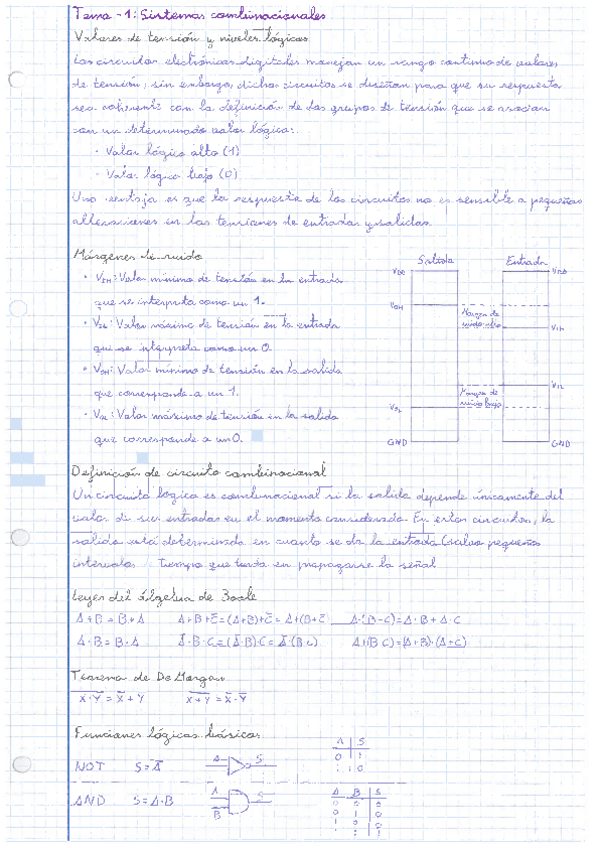 Tema - 1: Sistemas combinacionales
Valores de tensión y niveles lógicos
Los circuitos electrónicos digitales manejan un rango continuo de valores
de tensión, sin embargo, dichos circuitos se diseñan para que su respuesta
sea coherente con la definición de dos grupos de tensión que se asocian
con un determinado valor lógico:
· Valor lógico alto (1)
· Valor lógico bajo (0)
Una ventaja es que la respuesta de los circuitos no es sensible a pequeñas
alteraciones en las tensiones de entradas y salidas.
Márgenes de ruido
· VIH: Valor mínimo de tensión en la entrada
que se interpreta como un 1.
· VIL: Valor máximo de tensión en la entrada
que se interpreta como un 0.
· VOH: Valor mínimo de tensión en la salida
que corresponde a un 1.
· VOL: Valor máximo de tensión en la salida
que corresponde a un 0.
Salida Entrada
VDD VDD
VOH
Margen de
ruido alto
VIH
VIL
Margen de
ruido bajo
VOL
GND GND
Definición de circuito combinacional
Un circuito lógico es combinacional si la salida depende únicamente del
valor de sus entradas en el momento considerado. En estos circuitos, la
salida está determinada en cuanto se da la entrada (salvo pequeños
intervalos tiempo que tarda en propagarse la señal
Leyes del álgebra de Boole
A+B=B+A
A·B=B·A
Teorema de De Morgan
Funciones lógicas básicas:
NOT S=A̅ A S
A S
0 1
1 0
AND S=A·B A B S
A B S
0 0 0
0 1 0